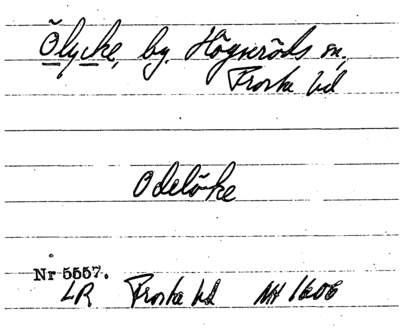 Ölycke, by. Högseröds sn,
Frosta hd
Odelöcke
Nr 5557.
LR Frosta hd MH 1606